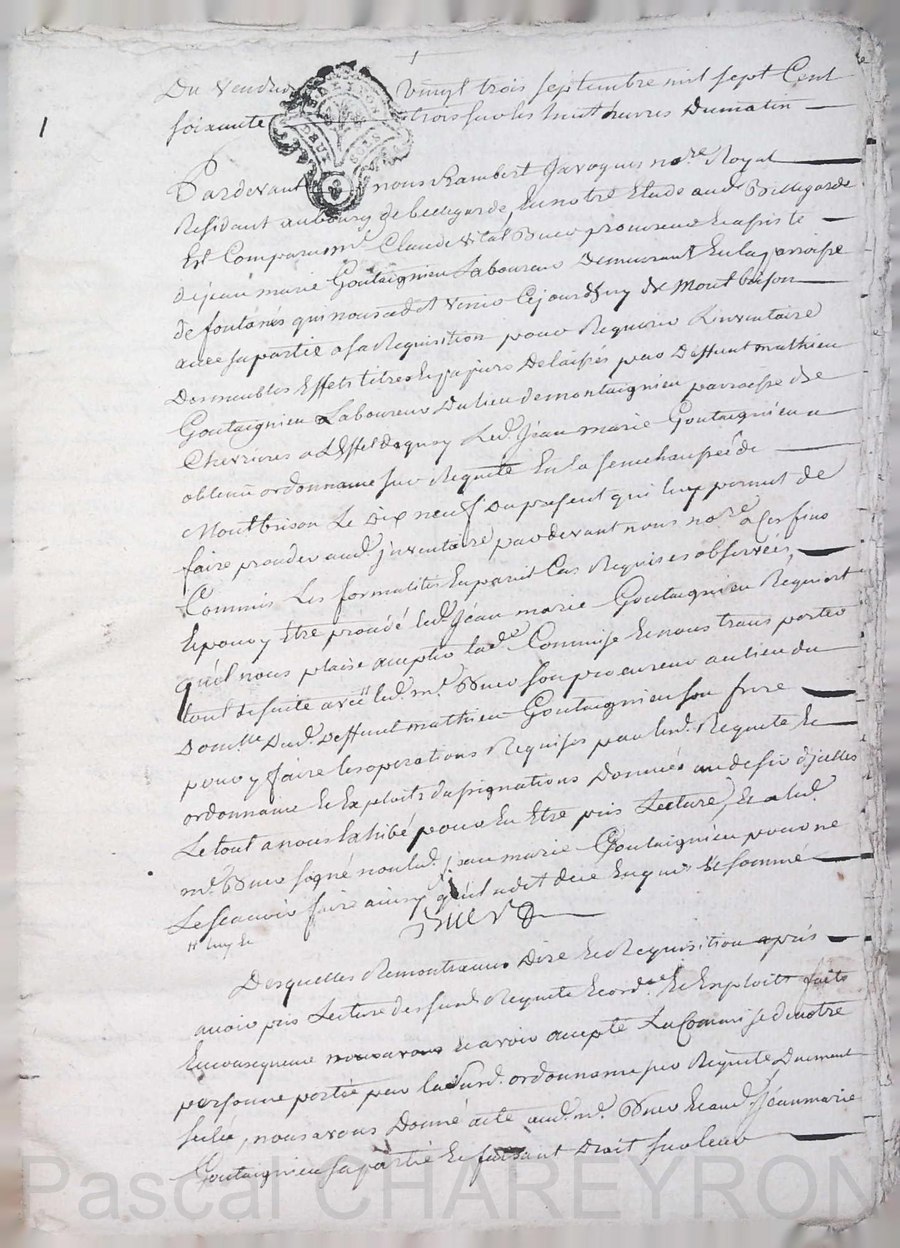 1
1
Du vendredy vingt trois septembre mil sept Cent
soixante trois sur les huit heures Dumatin
Pardevant nous Rambert Javogues no.re Royal
Résidant aubourg de bellegarde, En notre Etude aud. Bellegarde
Est Comparu m.e Claude Vital Buer procureur Et assisté
dejean marie Goutaignieu Laboureur Demeurant En la parroisse
de fontanés qui nous a dit Venir Cejourdhuy de Montbrison
avec sa partie a sa Requisition pour Requerir L'inventaire
Des meubles Effets titres Et papiers Delaissés par Deffunt mathieu
Goutaignieu Laboureur Du lieu de montaignieu parroisse de
Chevrieres a L'Effet dequoy Led. Jean marie Goutaignieu a
obtenu ordonnance sur Requete En la senechaussée de
Montbrison Le Dix neuf Du present qui luy permet de
faire proceder aud. jnventaire pardevant nous no.re a Ces fins
Commis Les formalités En pareil Cas Requises observées,
Et pour y Etre procédé led. Jean marie Goutaignieu Requiert
qu'il nous plaise accepter lad. Commise Et nous transporter
tout desuite avec led. m.e Buer son procureur au lieu du
Domicille Dud. Deffunt mathieu Goutaignieu son frere
pour y faire les operations Requises par lesd. Requete Et
ordonnance Et Exploits d'assignations Donnés au desir d'jcelles
Le tout a nous Exhibé pour En Etre pris Lecture, Et a led.
m.e Buer signé non led. jean marie Goutaignieu pour ne
Le scavoir faire ainsy qu'il a dit de ce Enquis Et sommé
Buer
Desquelles Remontrances Dire Et Requisition aprés
avoir pris Lecture des susd. Requete Et ord.ce Et Exploits faits
En consequence nous avons Et avoir accepté La Commise de notre
personne portée par la susd. ordonnance sur Requete Duement
scelée, nous avons Donné acte aud. m.e Buer Et aud. Jean marie
Goutaignieu sa partie Et faisant Droit sur leur
Pascal CHAREYRON